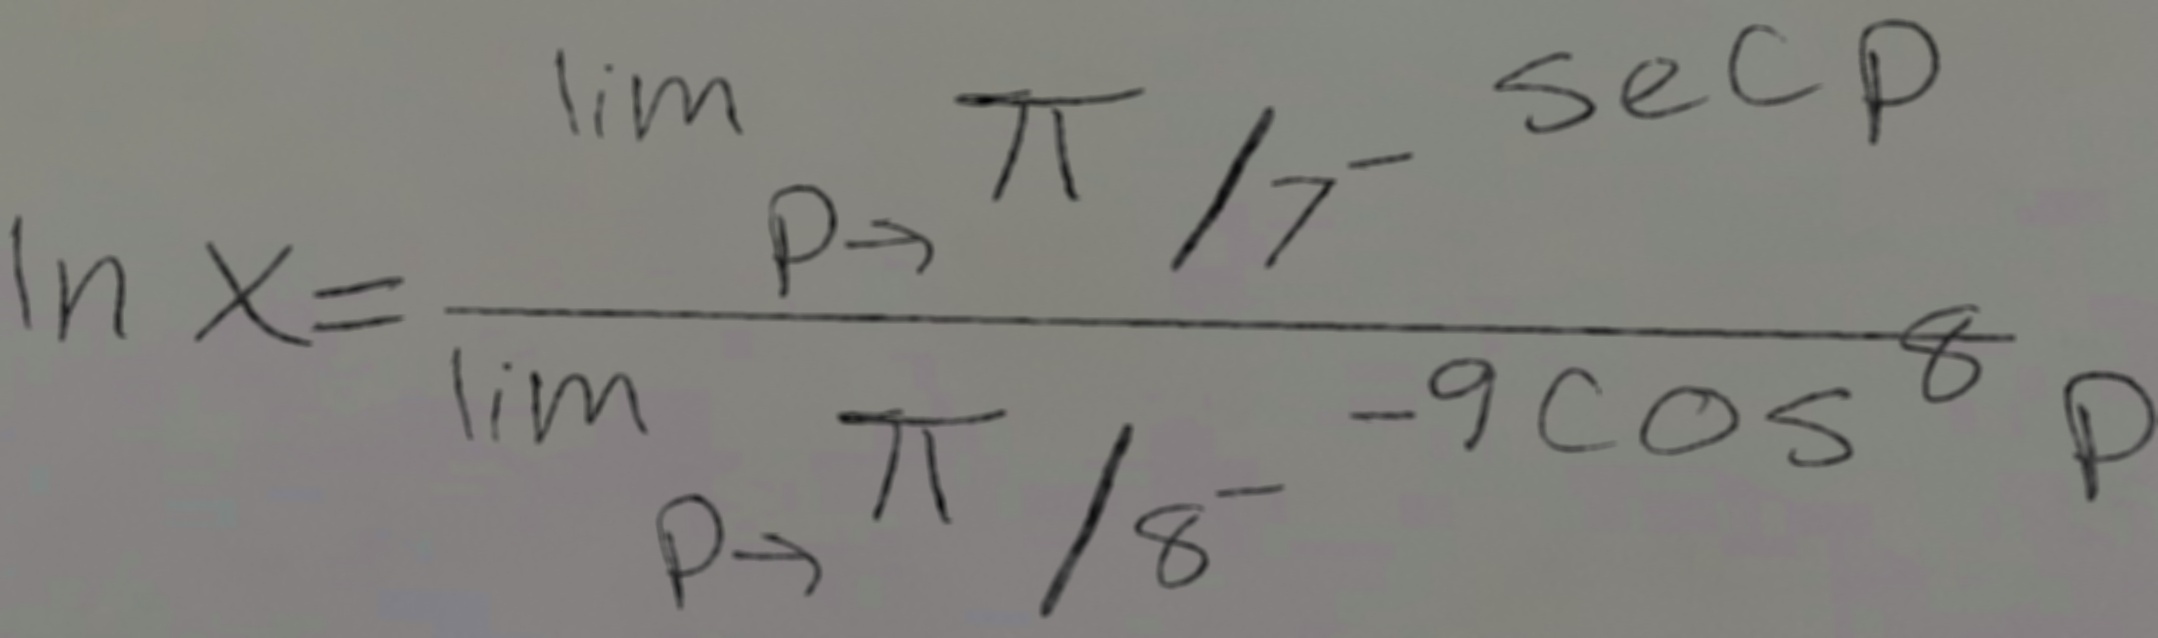 \ln x = \frac{\lim_{p \to \pi/7^-} \sec p}{\lim_{p \to \pi/8^-} -9 \cos^8 p}